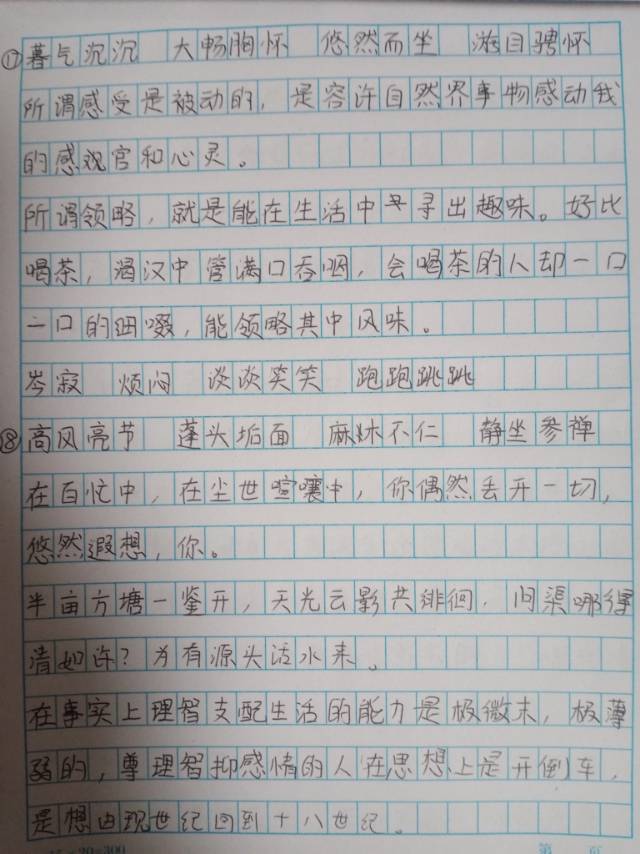 ⑰暮气沉沉 大畅胸怀 悠然而坐 游目骋怀
所谓感受是被动的，是容许自然界事物感动我
的感观官和心灵。
所谓领略，就是能在生活中寻出趣味。好比
喝茶，渴汉中管满口吞咽，会喝茶的人却一口
一口的细啜，能领略其中风味。
岑寂 烦闷 谈谈笑笑 跑跑跳跳
⑧高风亮节 蓬头垢面 麻木不仁 静坐参禅
在百忙中，在尘世喧嚷中，你偶然丢开一切，
悠然遐想，你。
半亩方塘一鉴开，天光云影共徘徊，问渠哪得
清如许？为有源头活水来。
在事实上理智支配生活的能力是极微末，极薄
弱的，尊理智抑感情的人在思想上是开倒车，
是想由现世纪回到十八世纪。